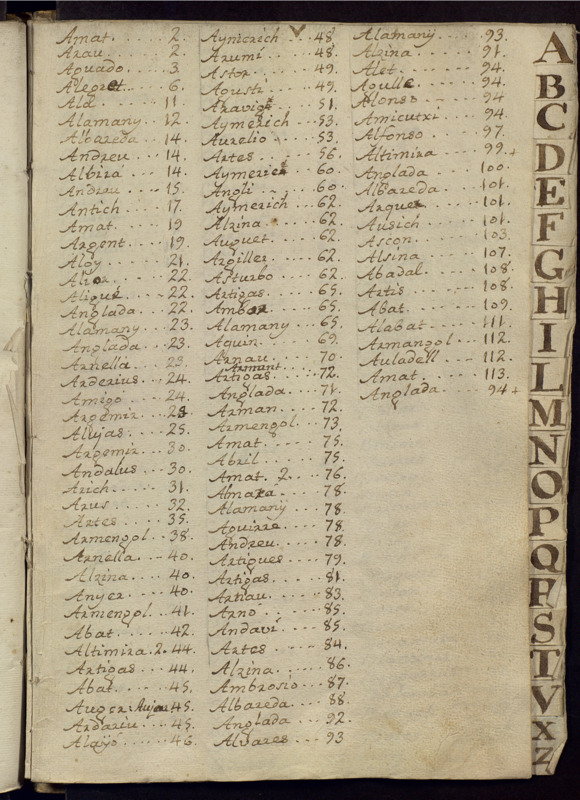 Amat 2.
Arau 2.
Aguado 3.
Alegret 6.
Ala 11.
Alamany 12.
Albareda 14.
Andreu 14.
Albira 14.
Andreu 15.
Antich 17.
Amat 19
Argent 19.
Aloy 21.
22.
Aligué 22.
Anglada 22.
Alamany 23.
Anglada 23.
Arnella 23.
Arderius 24.
Amigo 24.
Argemir
Allujas 25.
Argemir 30.
Andalus 30.
Arich 31.
Arus 32.
Artes 35.
Armengol 38.
Arnella 40.
Alzina 40.
Anyer 40.
Armengol 41.
Abat 42.
Altimira. 2. 44.
Artigas 44.
Abat 45.
45.
Ardariu 45.
46.
Aymerich 48
Arumí 48.
Astor 49.
Agusti 49.
51.
Aymerich 53.
Aurelio 53.
Artes 56.
Aymeric 60.
Angli 60.
Aymerich 62.
Alzina 62.
Auguet 62.
Argiller 62.
Asturbo 62.
Artigas 65.
65.
Alamany 65.
Aquir 69.
Arnau 70.
Armant
Artigas 72.
Anglada 71.
Arman 72.
Armengol 73.
Amat 75.
Abril 75.
Amat 2. 76.
78.
Alamany 78.
Aguirre 78.
Andreu 78.
Artigues 79.
Artigas 81.
Artiau 83.
Arnó 85.
Andaví 85.
Artes 84.
Alzina 86.
Ambrosio 87.
Albareda 88.
Anglada 92.
Alvares 93
Alamany 93.
Alzina 91.
Alet 94.
Agulle 94.
Alonso 94
94.
Alfonso 97.
Altimira 99.
Anglada 100.
Albareda 101.
Arquer 101.
Ausich 101.
Ascon 103.
Alsina 107.
Abadal 108.
Artis 108.
Abat 109.
Alabat 111.
Armangol 112.
Auladell 112.
Amat 113.
Anglada 94+
A
B
C
D
E
F
G
H
I
L
M
N
O
P
Q
R
S
T
V
X
Z